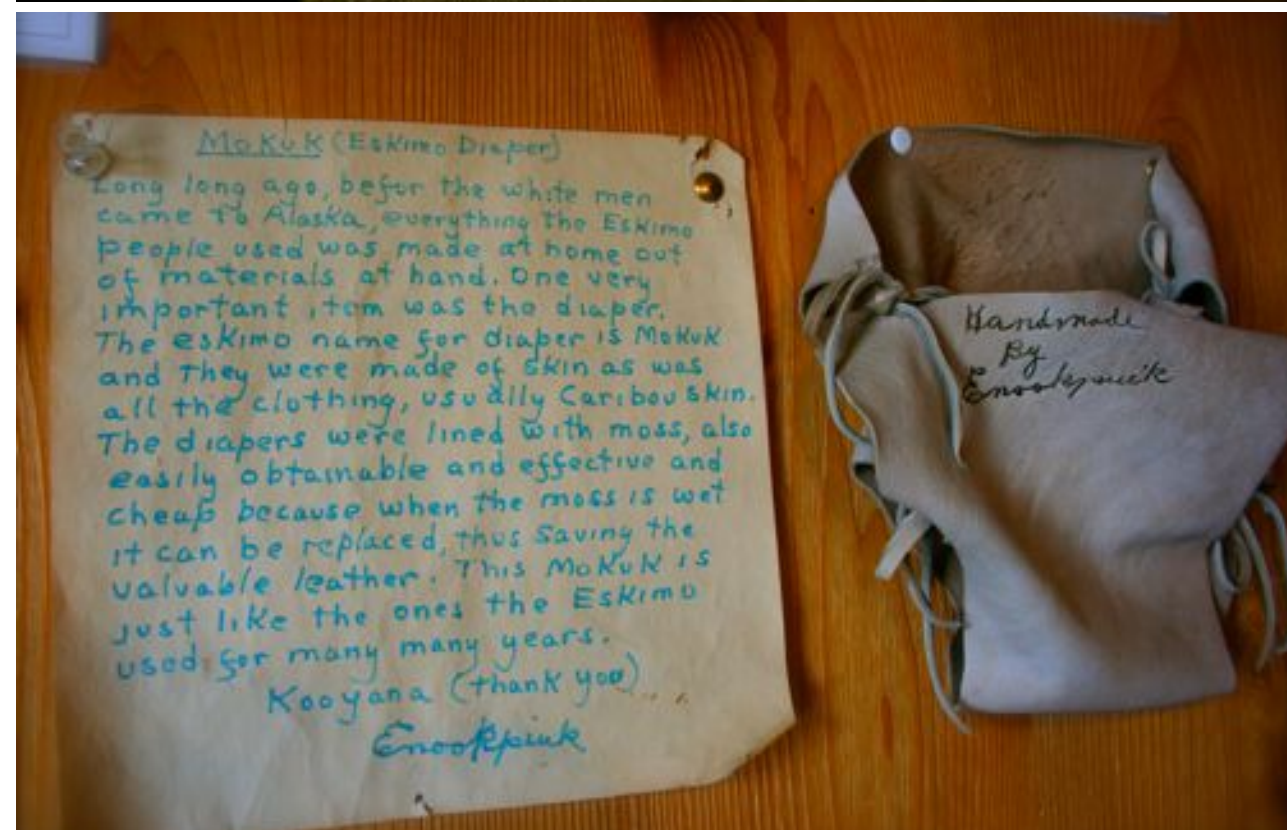 Mokuk (Eskimo Diaper)
Long long ago, befor the white men
came to Alaska, everything the Eskimo
people used was made at home out
of materials at hand. One very
important item was the diaper.
The eskimo name for diaper is Mokuk
and they were made of skin as was
all the clothing, usually Caribou skin.
The diapers were lined with moss, also
easily obtainable and effective and
cheap because when the moss is wet
it can be replaced, thus saving the
valuable leather. This Mokuk is
just like the ones the Eskimo
used for many many years.
Kooyana (thank you)
Enookpiuk
Handmade
By
Enookpiuk